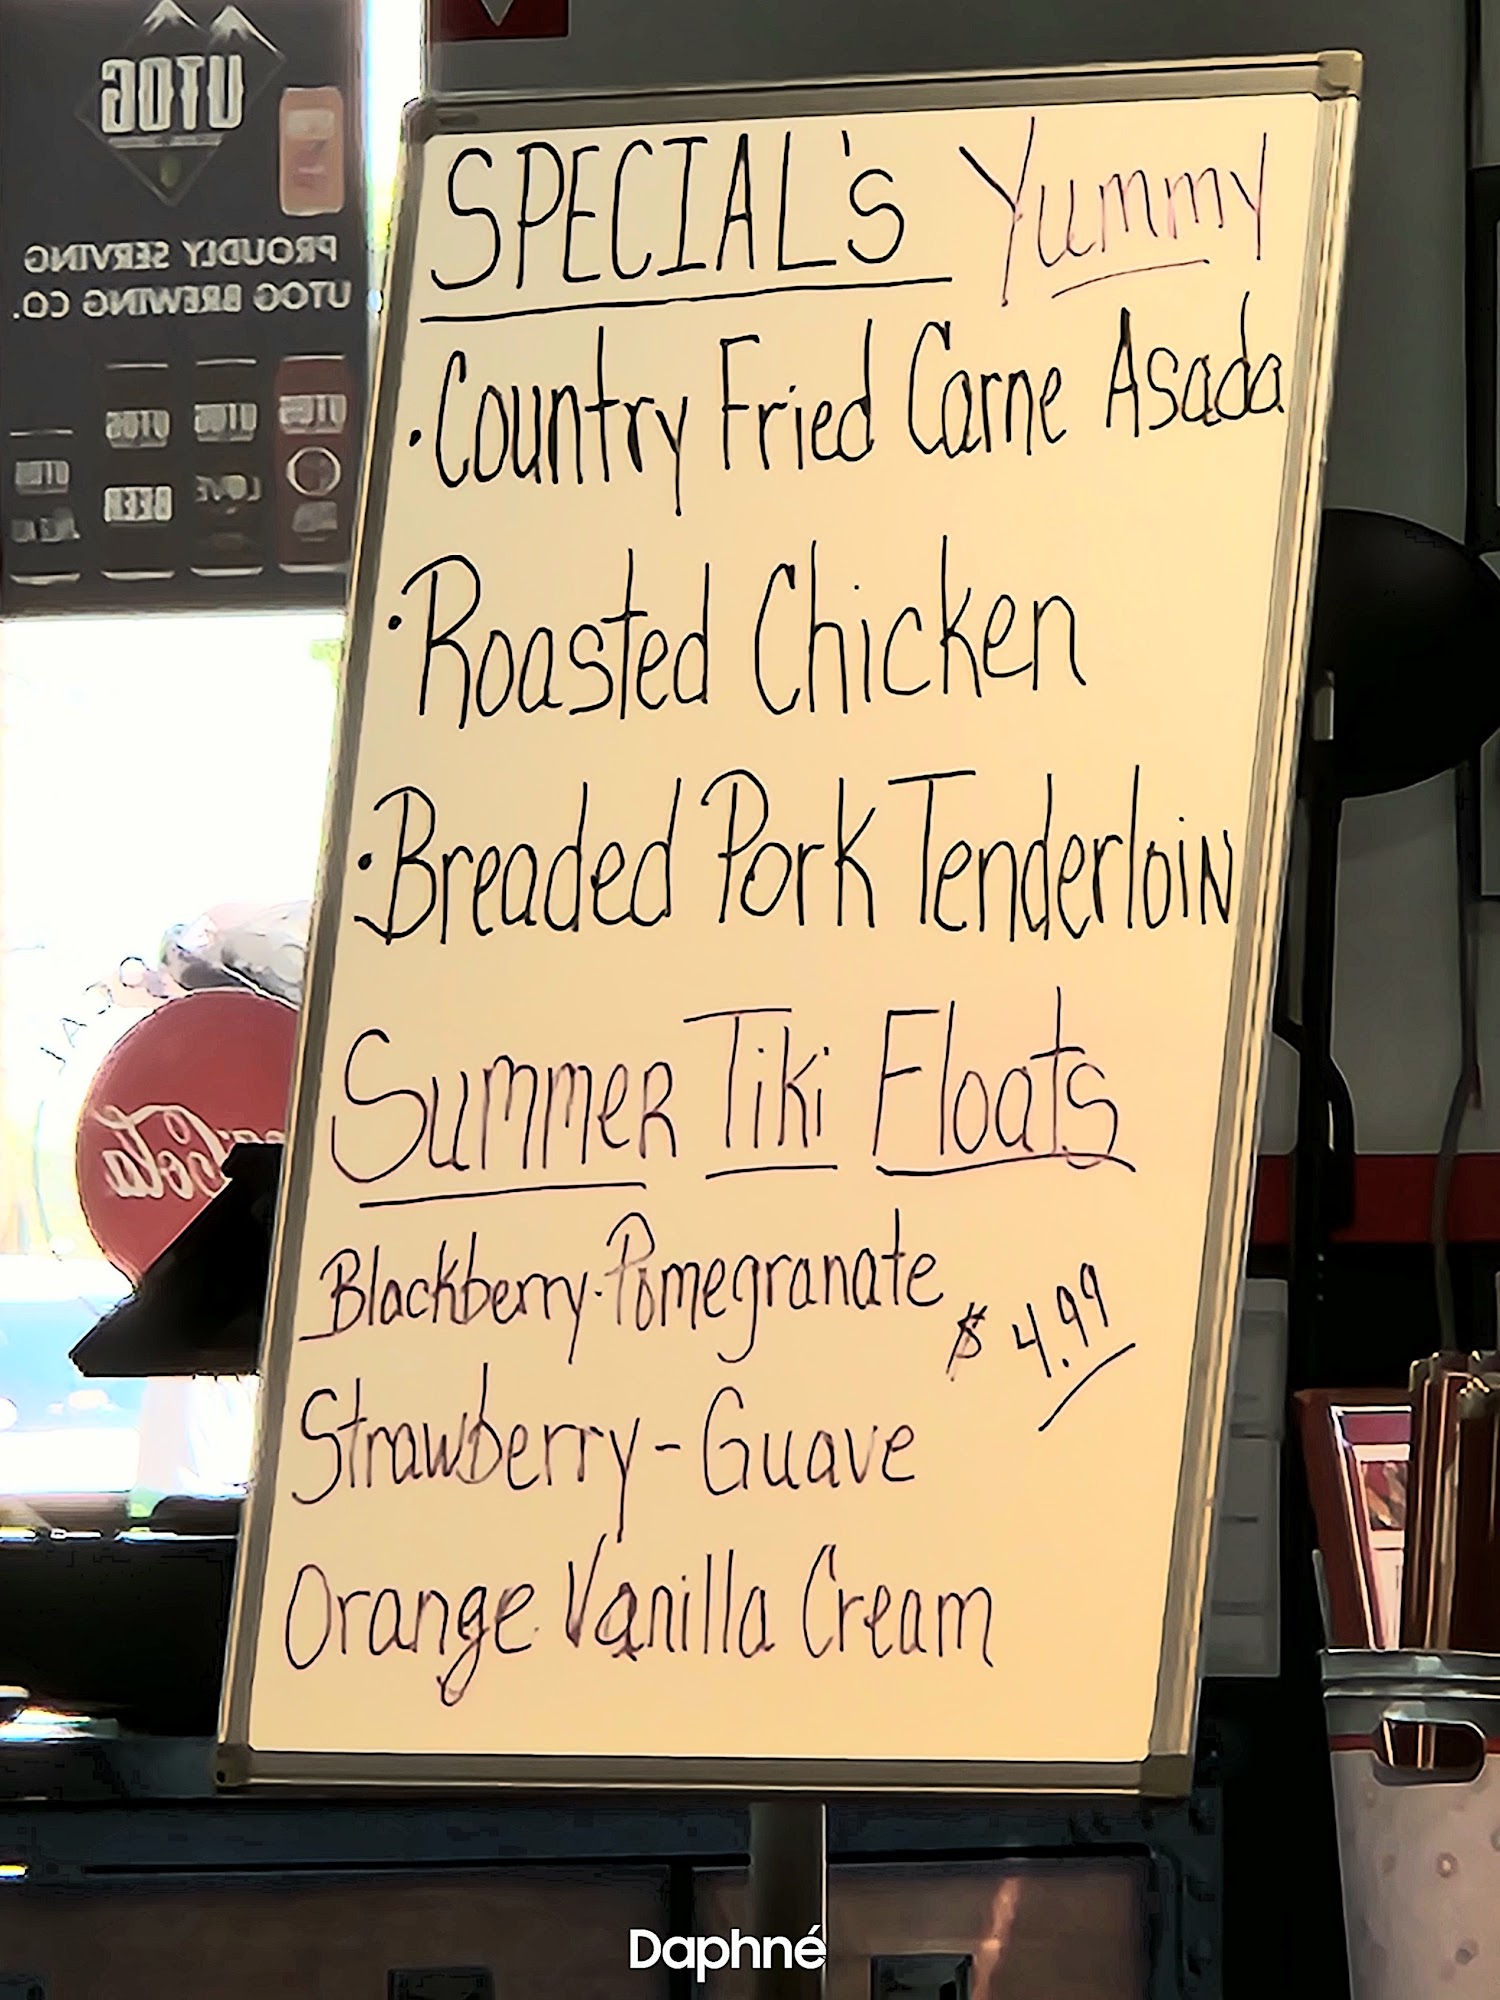 UTOG
PROUDLY SERVING
UTOG BREWING CO.
UTOG UTOG UTOG UTOG
BEER LOVE
Coca-Cola
SPECIAL's Yummy
• Country Fried Carne Asada
• Roasted Chicken
• Breaded Pork TenderloiN
SummeR Tiki Floats
Blackberry-Pomegranate
$ 4.99
Strawberry - Guave
Orange Vanilla Cream
Daphné